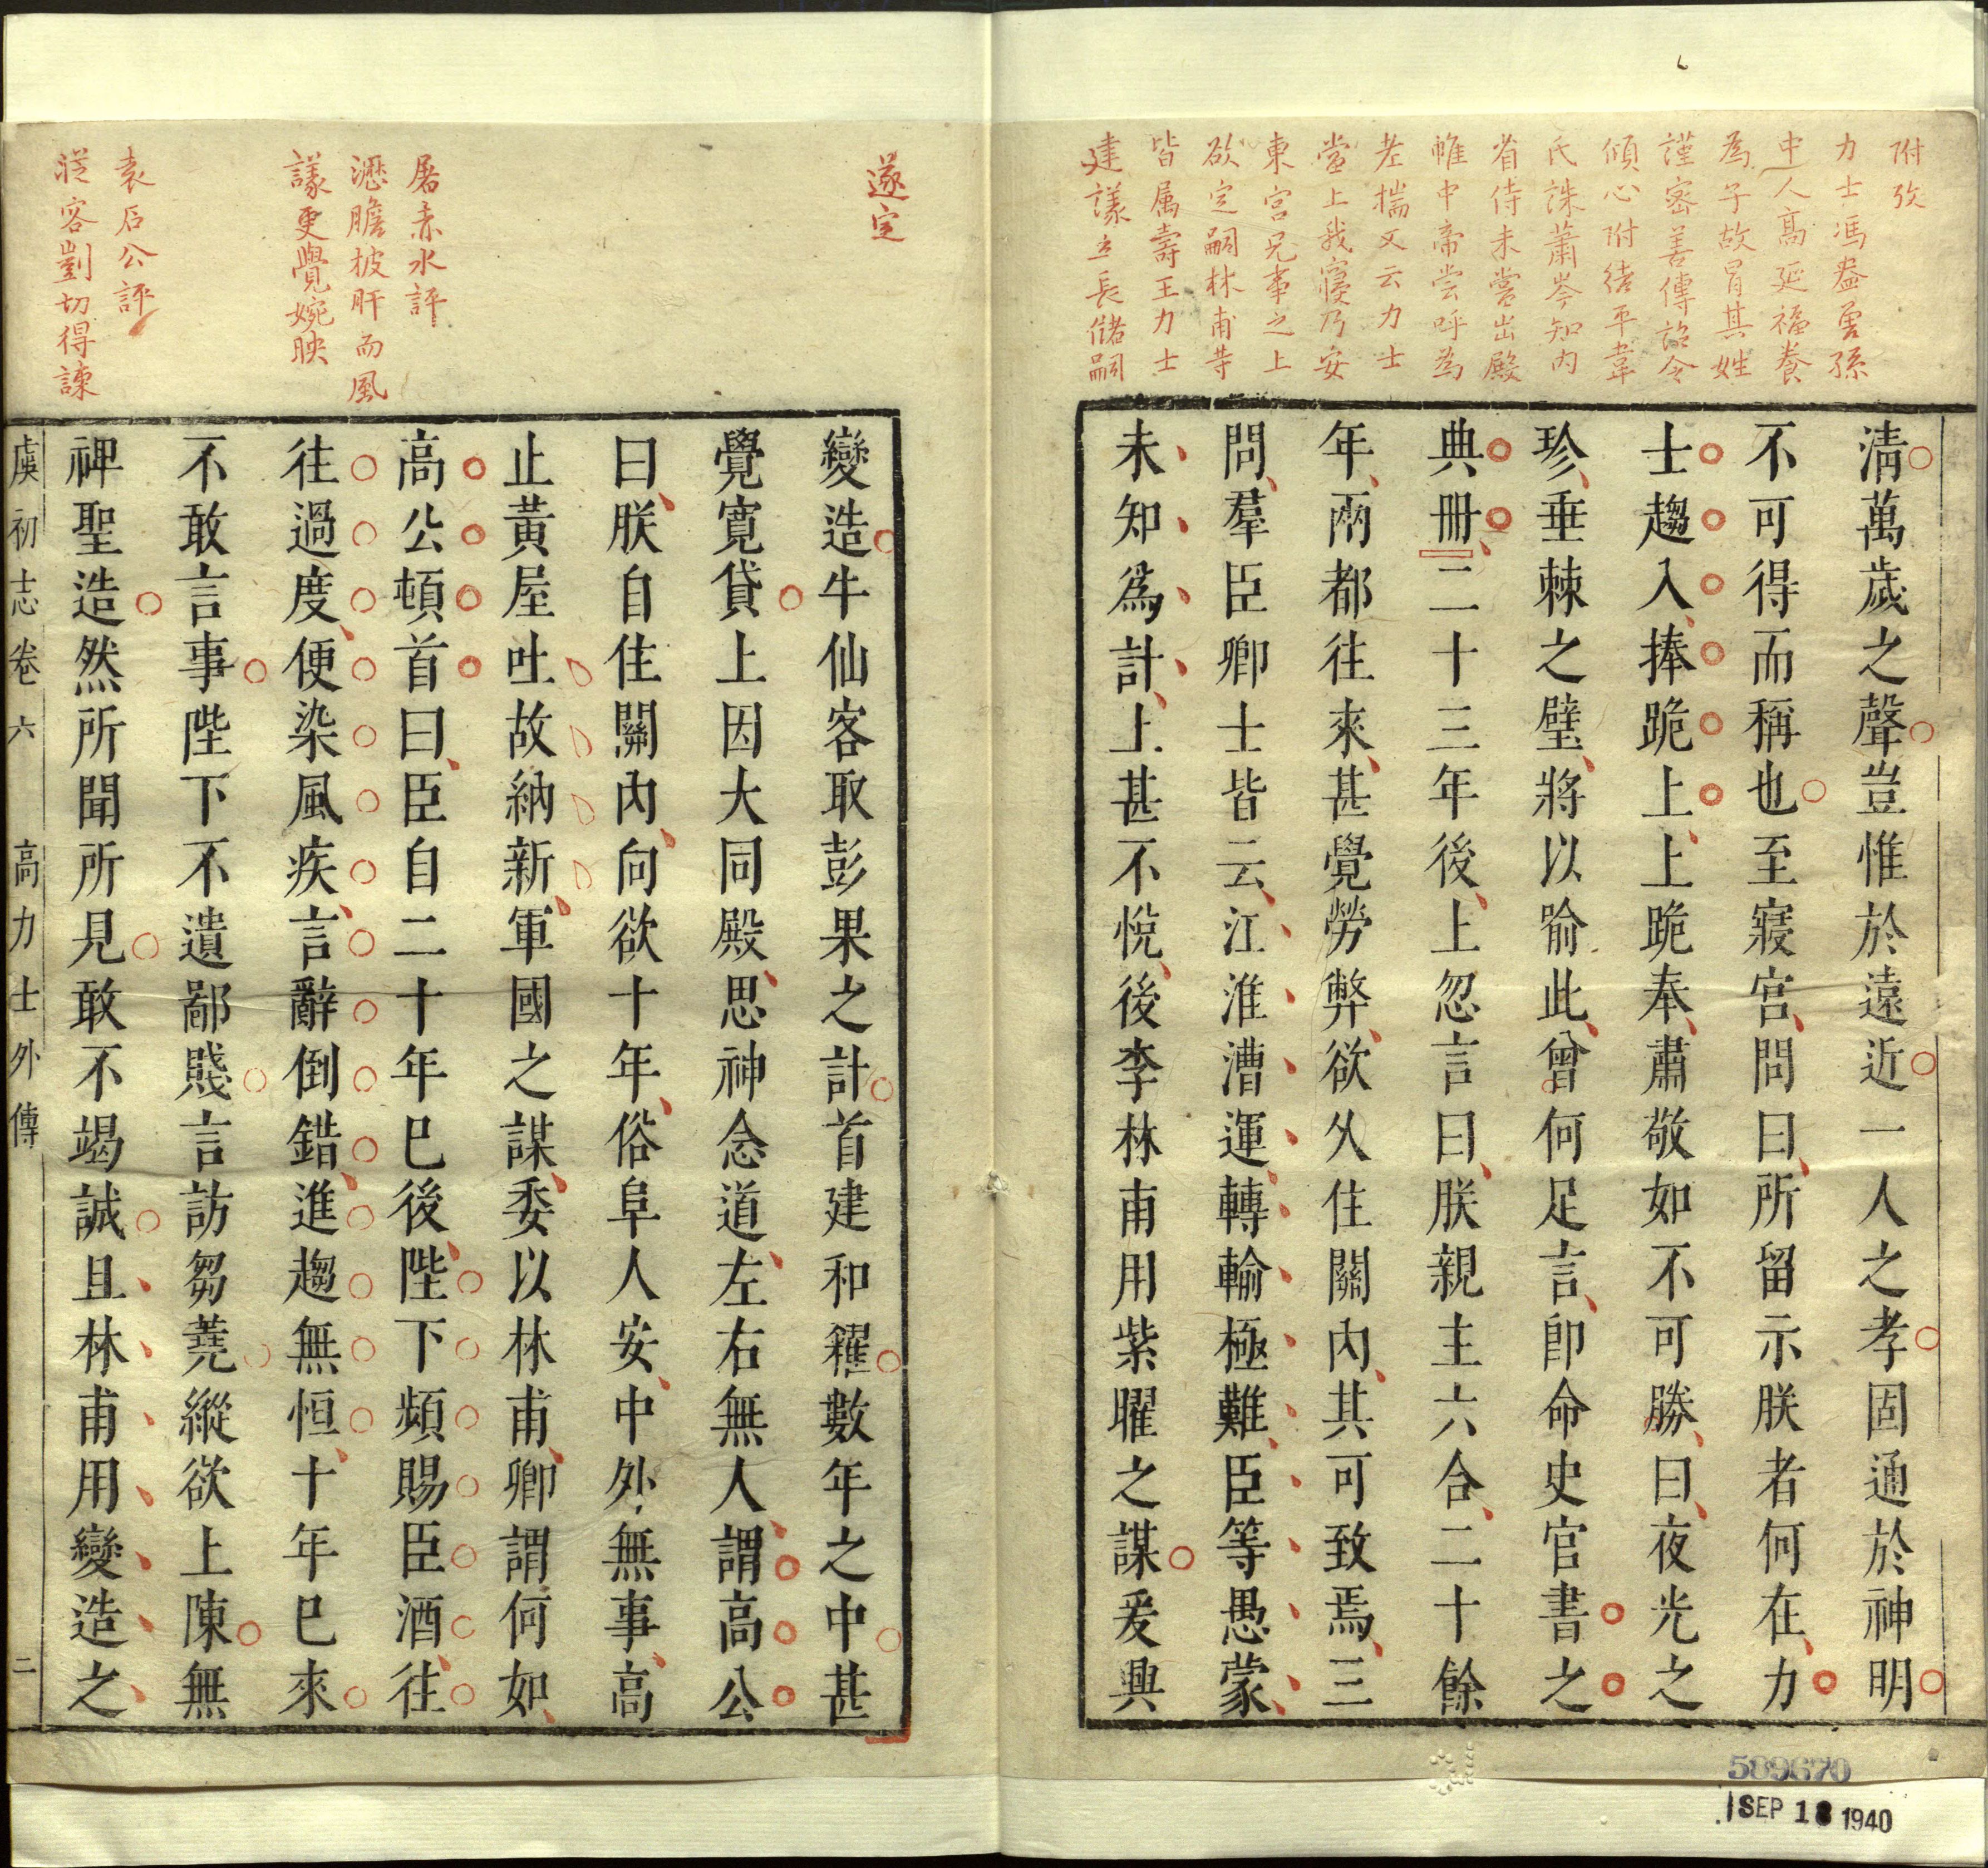 附攷
力士馮盎曾孫
中人高延福養
為子故冐其姓
謹密善傳詔令
傾心附結平韋
氏誅蕭岑知內
省侍未嘗出殿
帷中帝嘗呼為
老揣又云力士
當上我寢乃安
東宮兄事之上
欲定嗣林甫等
皆属壽王力士
建議立長儲嗣
清萬歲之聲豈惟於遠近一人之孝固通於神明
不可得而稱也至寢宮問曰所留示朕者何在力
士趨入捧跪上上跪奉肅敬如不可勝曰夜光之
珍垂棘之璧將以喻此曾何足言卽命史官書之
典冊二十三年後上忽言曰朕親主六合二十餘
年兩都往來甚覺勞弊欲久住關內其可致焉三
問羣臣卿士皆云江淮漕運轉輸極難臣等愚蒙
未知爲計上甚不悅後李林甫用紫曜之謀爰興
遂定
屠赤水評
瀝膽披肝而風
議更覺婉映
袁石公評
從容剴切得諫
變造牛仙客取彭果之計首建和糴數年之中甚
覺寬貸上因大同殿思神念道左右無人謂高公
曰朕自住關內向欲十年俗阜人安中外無事高
止黃屋吐故納新軍國之謀委以林甫卿謂何如
高公頓首曰臣自二十年巳後陛下頻賜臣酒往
往過度便染風疾言辭倒錯進趨無恒十年巳來
不敢言事陛下不遺鄙賤言訪芻蕘縱欲上陳無
裨聖造然所聞所見敢不竭誠且林甫用變造之
虞初志卷六 高力士外傳 二
589670
SEP 18 1940